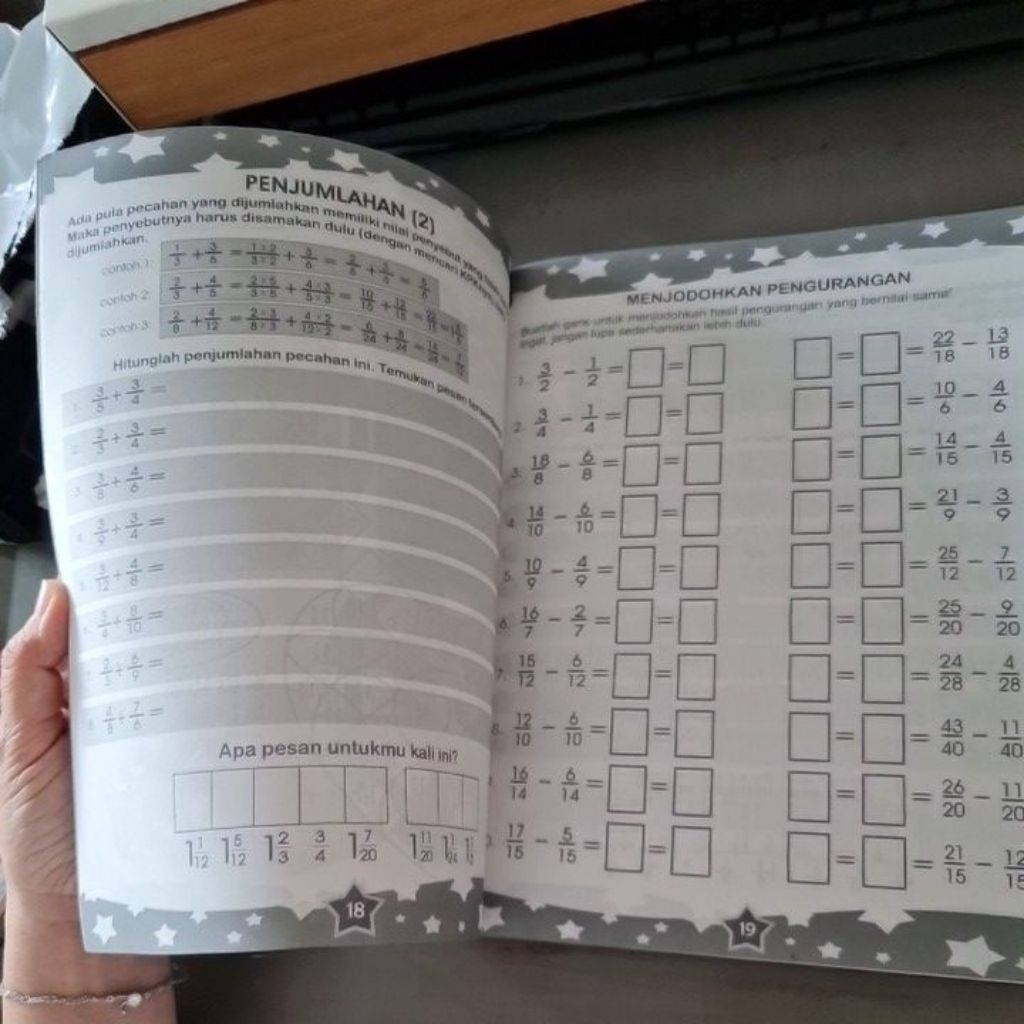 PENJUMLAHAN (2)
Ada pula pecahan yang dijumlahkan memiliki nilai penyebut yang
Maka penyebutnya harus disamakan dulu (dengan mencari KPK
dijumlahkan.
contoh 1: 1/3 + 3/6 = 1×2/3×2 + 3/6 = 2/6 + 3/6 = 5/6
contoh 2: 2/3 + 4/5 = 2×5/3×5 + 4×3/5×3 = 10/15 + 12/15 = 22/15
contoh 3: 2/8 + 4/12 = 2×3/8×3 + 4×2/12×2 = 6/24 + 8/24 = 14/24 =
Hitunglah penjumlahan pecahan ini. Temukan pesan
1. 3/5 + 3/4 =
2. 2/3 + 3/4 =
3. 3/8 + 4/6 =
4. 3/9 + 3/4 =
5. 3/12 + 4/8 =
6. 3/4 + 8/10 =
7. 2/3 + 6/9 =
8. 4/8 + 7/6 =
Apa pesan untukmu kali ini?
1 1/12 1 5/12 1 2/3 3/4 1 7/20 1 11/20 1 1/24
18
MENJODOHKAN PENGURANGAN
Buatlah garis untuk menjodohkan hasil pengurangan yang bernilai sama!
Ingat, jangan lupa sederhanakan lebih dulu.
1. 3/2 - 1/2 = = = = 22/18 - 13/18
2. 3/4 - 1/4 = = = = 10/6 - 4/6
3. 18/8 - 6/8 = = = = 14/15 - 4/15
4. 14/10 - 6/10 = = = = 21/9 - 3/9
5. 10/9 - 4/9 = = = = 25/12 - 7/12
6. 16/7 - 2/7 = = = = 25/20 - 9/20
7. 15/12 - 6/12 = = = = 24/28 - 4/28
8. 12/10 - 6/10 = = = = 43/40 - 11/40
16/14 - 6/14 = = = = 26/20 - 11/20
17/15 - 5/15 = = = = 21/15 - 12/15
19